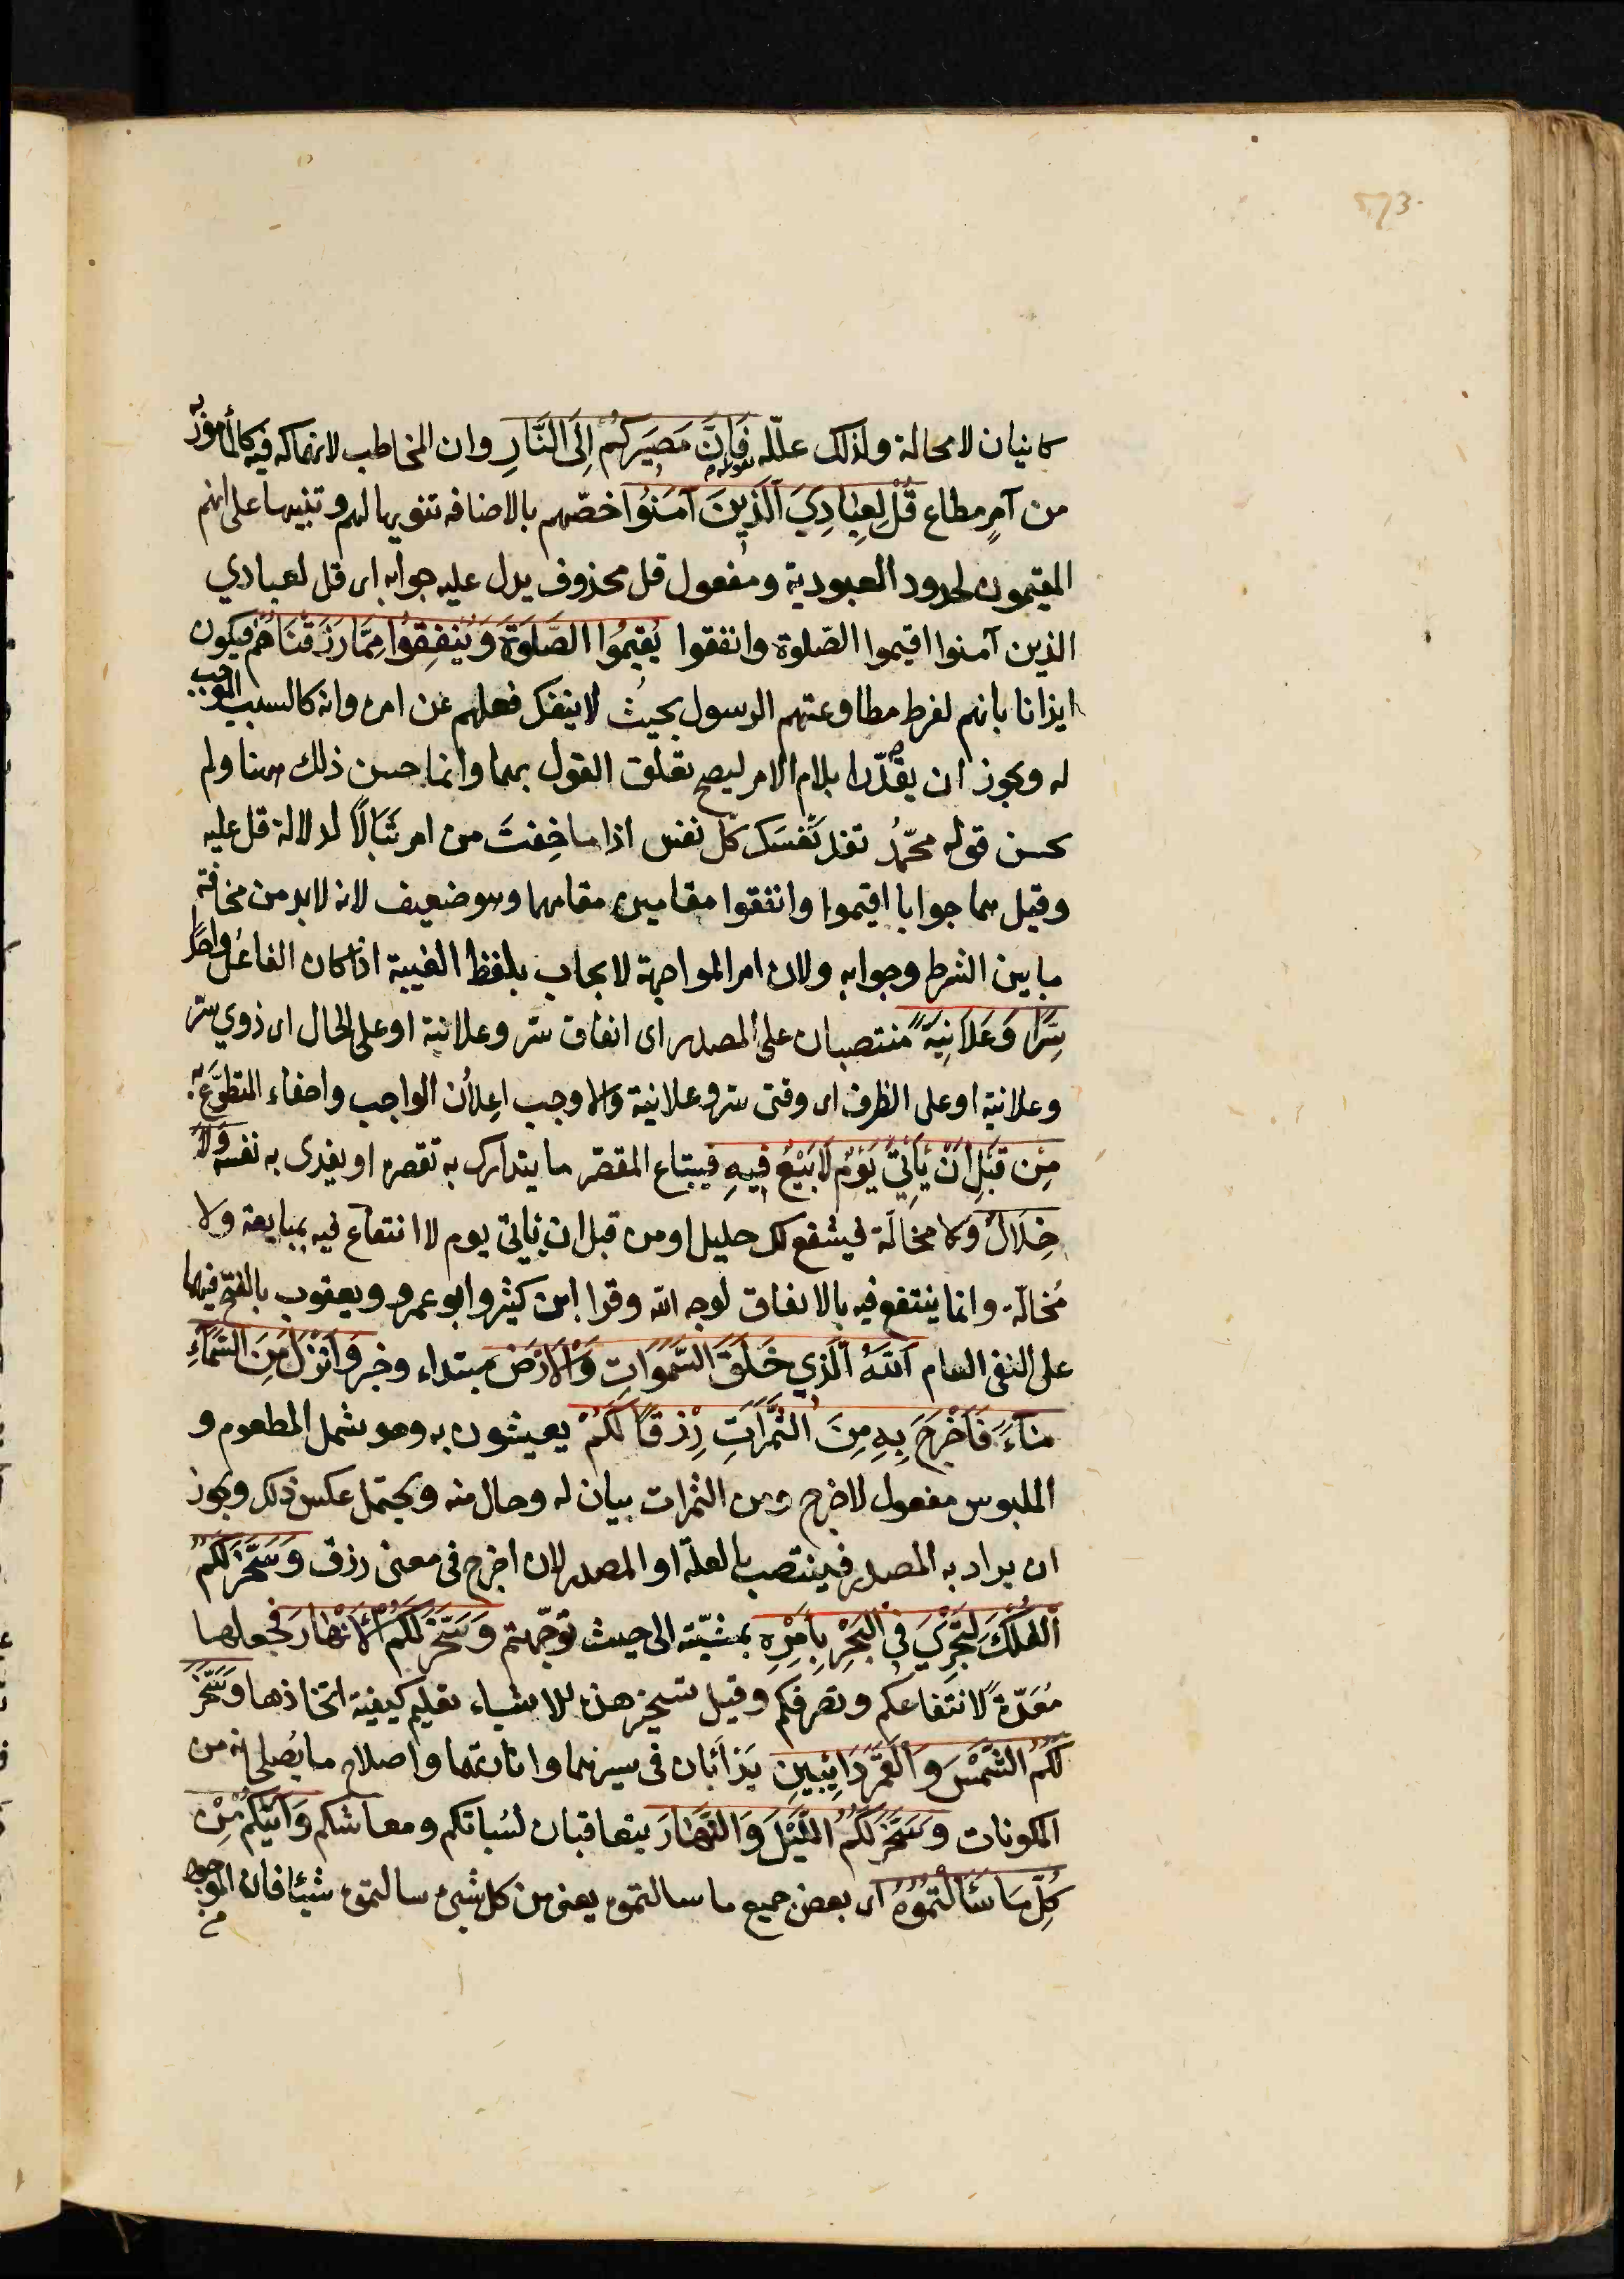 573
كانيان لا محالة ولذلك علّله بقوله فَاِنَّ مَصِيرَكُمْ اِلَى النَّارِ وان المخاطب لانهماكه فيه كالمأمور به
من آمرٍ مطاع قُلْ لِعِبَادِيَ الَّذِينَ آمَنُوا خصّهم بالاضافه تنويها لهم وتنبيها على انهم
المقيمون لحدود العبودية ومفعول قل محذوف يدل عليه جوابه اى قل لعبادي
الذين آمنوا اقيموا الصّلوة وانفقوا يُقِيمُوا الصَّلوَةَ وَيُنْفِقُوا مِمَّا رَزَقْنَاهُمْ فيكون
ايذانا بانهم لفرط مطاوعتهم الرسول بحيث لا ينفك فعلهم عن امره وانه كالسبب الموجب
له ويجوز ان يقدّرا بلام الامر ليصح تعلق القول بهما وانما حسن ذلك ههنا ولم
يحسن قوله محمّدُ تفد نَفسَك كلّ نفس اذا ما خِفتَ من امر تَبَالًا لدلالة قل عليه
وقيل هما جوابا اقيموا وانفقوا مقامين مقامهما وهو ضعيف لانه لا بد من مخالفة
ما بين الشرط وجوابه ولان امر المواجهة لا يجاب بلفظ الغيبة اذا كان الفاعل واحدًا
سِرًّا وَعَلَانِيَةً منتصبان على المصدر اى انفاق سر وعلانية او على الحال اى ذوي سر
وعلانية او على الظرف اى وقتى سر وعلانية والاوجب اعلان الواجب واخفاء المتطوَّع به
مِنْ قَبْلِ اَنْ يَأْتِيَ يَوْمٌ لَا بَيْعٌ فِيهِ فيبتاع المقصر ما يتدارك به تقصره او يفدى به نفسه وَلَا
خِلَالٌ ولا مخالّة فيشفع لك خليل او من قبل ان ياتى يوم لا انتفاع فيه بمبايعة ولا
مُخالّة وانما ينتفع فيه بالانفاق لوجه الله وقرا ابن كثير وابو عمرو ويعقوب بالفتح فيهما
على النفى العام اَللّهُ الَّذِي خَلَقَ السَّمٰوَاتِ وَالْاَرْضَ مبتداء وخبر وَاَنْزَلَ مِنَ السَّمَآءِ
مَآءً فَاَخْرَجَ بِهِ مِنَ الثَّمَرَاتِ رِزْقًا لَكُمْ يعيشون به وهو شمل المطعوم و
الملبوس مفعول لاخرج ومن الثمرات بيان له وحال منه ويحتمل عكس ذلك ويجوز
ان يراد به المصدر فينتصب بالعلة او المصدر لان اخرج فى معنى رزق وَسَخَّرَ لَكُمُ
الْفُلْكَ لِتَجْرِيَ فِي الْبَحْرِ بِاَمْرِهِ بمشيّته الى حيث توجّهتم وَسَخَّرَ لَكُمُ الْاَنْهَارَ فجعلها
مُعَدّةً لانتفاعكم وتصرفكم وقيل تسخير هذه الاشياء تعليم كيفية اتخاذها وَسَخَّرَ
لَكُمُ الشَّمْسَ وَالْقَمَرَ دَائِبَيْنِ يَدْأَبَان فى سيرهما وانارتهما واصلاح ما يُصلحانه من
المكونات وَسَخَّرَ لَكُمُ اللَّيْلَ وَالنَّهَارَ يتعاقبان لسُباتكم ومعاشكم وَآتَيكُمْ مِنْ
كُلِّ مَا سَأَلْتُمُوهُ اى بعض جميع ما سالتموه يعنى من كل شىء سالتموه شيئا فان الموجود